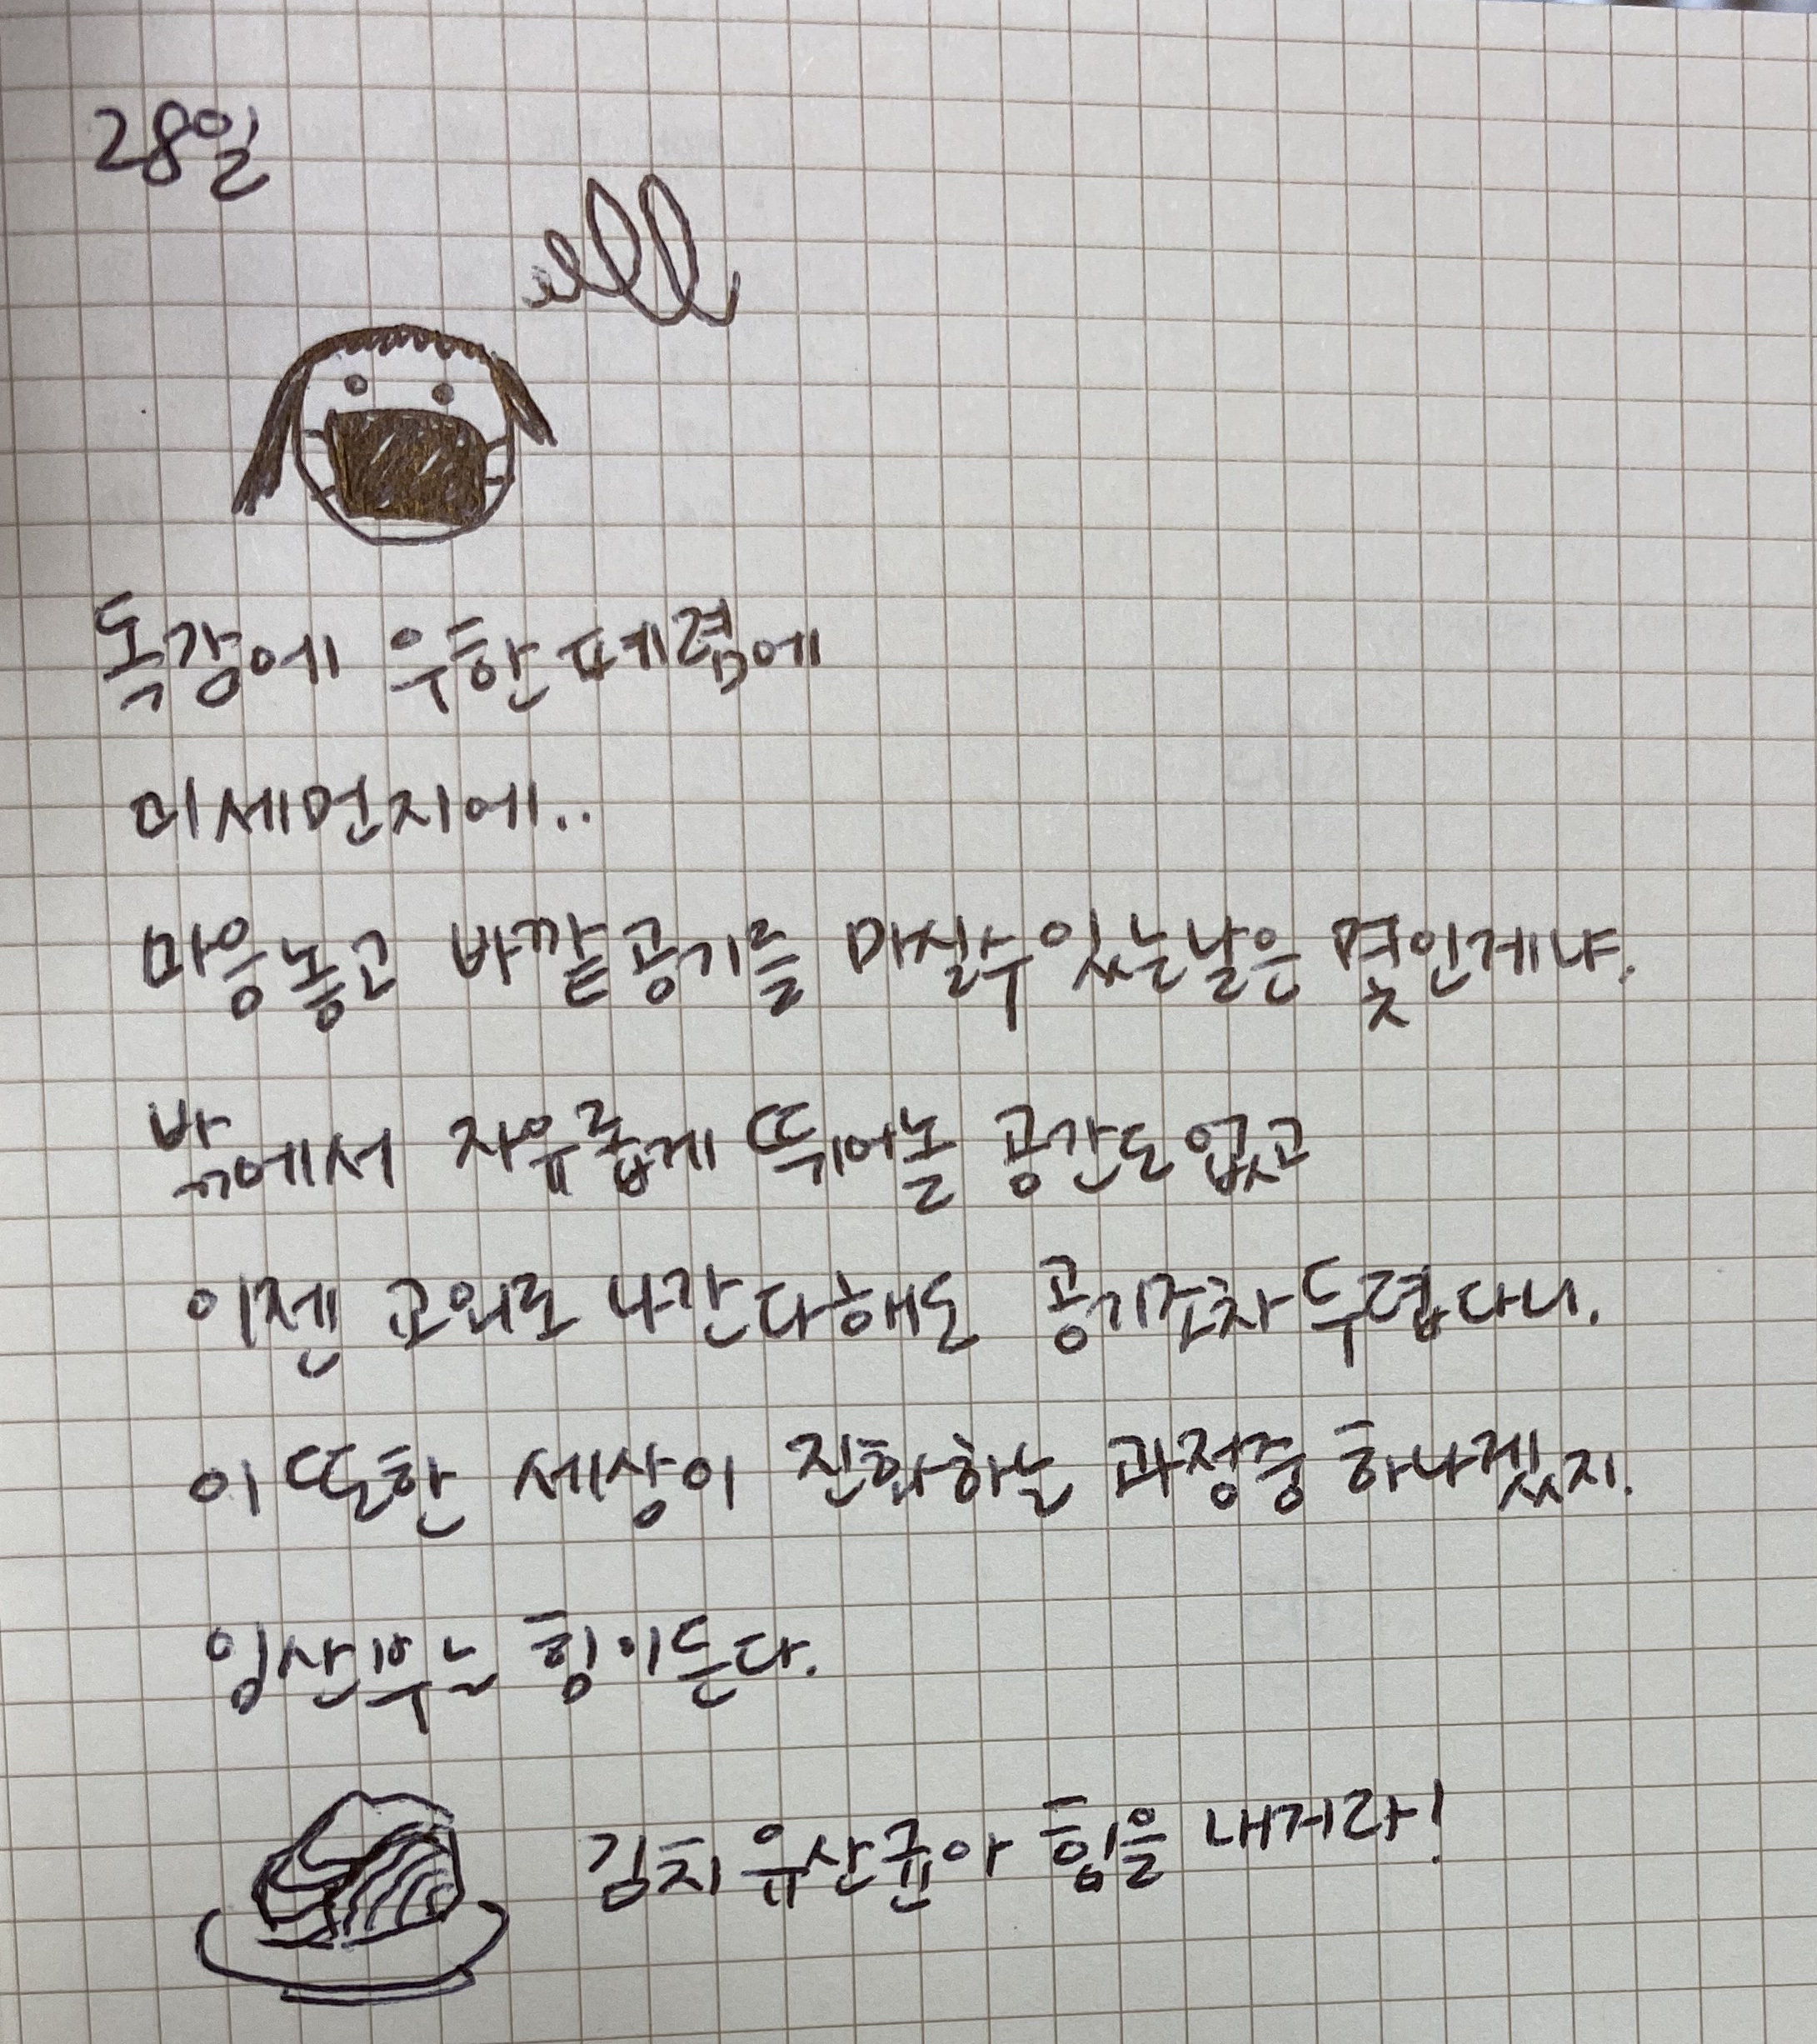 28일
독감에 우한폐렴에
미세먼지에..
마음놓고 바깥공기를 마실수있는날은 몇인게냐.
밖에서 자유롭게 뛰어놀 공간도없고
이젠 교외로 나간다해도 공기조차두렵다니.
이 또한 세상이 진화하는 과정중 하나겠지.
임산부는 힘이든다.
김치유산균아 힘을 내거라!